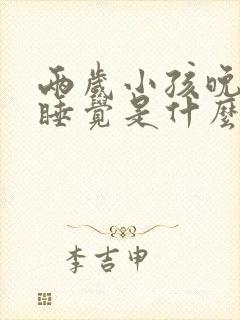 兩歲小孩晚
睡覺是什麼
李吉申